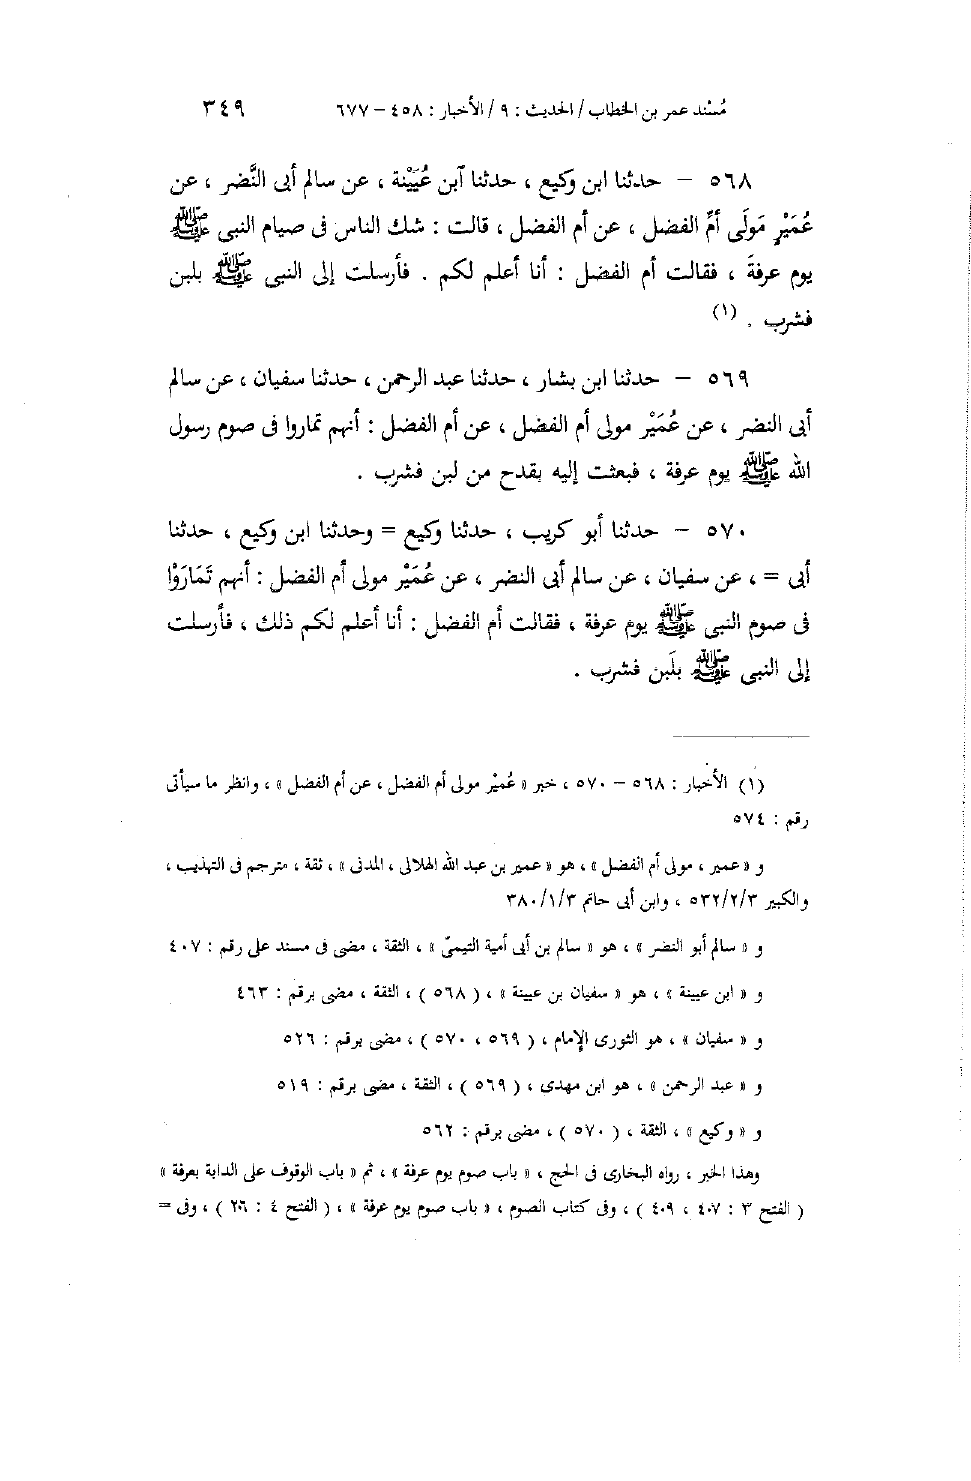 مُسْند عمر بن الخطاب / الحديث : ٩ / الأخبار : ٤٥٨ – ٦٧٧ ٣٤٩
٥٦٨ – حدثنا ابن وكيع ، حدثنا آبن عُيَيْنة ، عن سالم أبى النَّضر ، عن
عُمَيْرٍ مَولَى أمِّ الفضل ، عن أم الفضل ، قالت : شك الناس فى صيام النبى ﷺ
يوم عرفةَ ، فقالت أم الفضل : أنا أعلم لكم . فأرسلت إلى النبى ﷺ بلبن
فشرب . (١)
٥٦٩ – حدثنا ابن بشار ، حدثنا عبد الرحمن ، حدثنا سفيان ، عن سالم
أبى النضر ، عن عُمَيْر مولى أم الفضل ، عن أم الفضل : أنهم تماروا فى صوم رسول
الله ﷺ يوم عرفة ، فبعثت إليه بقدح من لبن فشرب .
٥٧٠ – حدثنا أبو كريب ، حدثنا وكيع = وحدثنا ابن وكيع ، حدثنا
أبى = ، عن سفيان ، عن سالم أبى النضر ، عن عُمَيْر مولى أم الفضل : أنهم تَمَارَوْا
فى صوم النبى ﷺ يوم عرفة ، فقالت أم الفضل : أنا أعلم لكم ذلك ، فأرسلت
إلى النبى ﷺ بلَبن فشرب .
(١) الأخبار : ٥٦٨ – ٥٧٠ ، خبر « عُميْر مولى أم الفضل ، عن أم الفضل » ، وانظر ما سيأتى
رقم : ٥٧٤
و « عمير ، مولى أم الفضل » ، هو « عمير بن عبد الله الهلالى ، المدنى » ، ثقة ، مترجم فى التهذيب ،
والكبير ٥٣٢/٢/٣ ، وابن أبى حاتم ٣٨٠/١/٣
و « سالم أبو النضر » ، هو « سالم بن أبى أمية التيمىّ » ، الثقة ، مضى فى مسند على رقم : ٤٠٧
و « ابن عيينة » ، هو « سفيان بن عيينة » ، ( ٥٦٨ ) ، الثقة ، مضى برقم : ٤٦٣
و « سفيان » ، هو الثورى الإمام ، ( ٥٦٩ ، ٥٧٠ ) ، مضى برقم : ٥٢٦
و « عبد الرحمن » ، هو ابن مهدى ، ( ٥٦٩ ) ، الثقة ، مضى برقم : ٥١٩
و « وكيع » ، الثقة ، ( ٥٧٠ ) ، مضى برقم : ٥٦٢
وهذا الخبر ، رواه البخارى فى الحج ، « باب صوم يوم عرفة » ، ثم « باب الوقوف على الدابة بعرفة »
( الفتح ٣ : ٤٠٧ ، ٤٠٩ ) ، وفى كتاب الصوم ، « باب صوم يوم عرفة » ، ( الفتح ٤ : ٢٠٦ ) ، وفى =